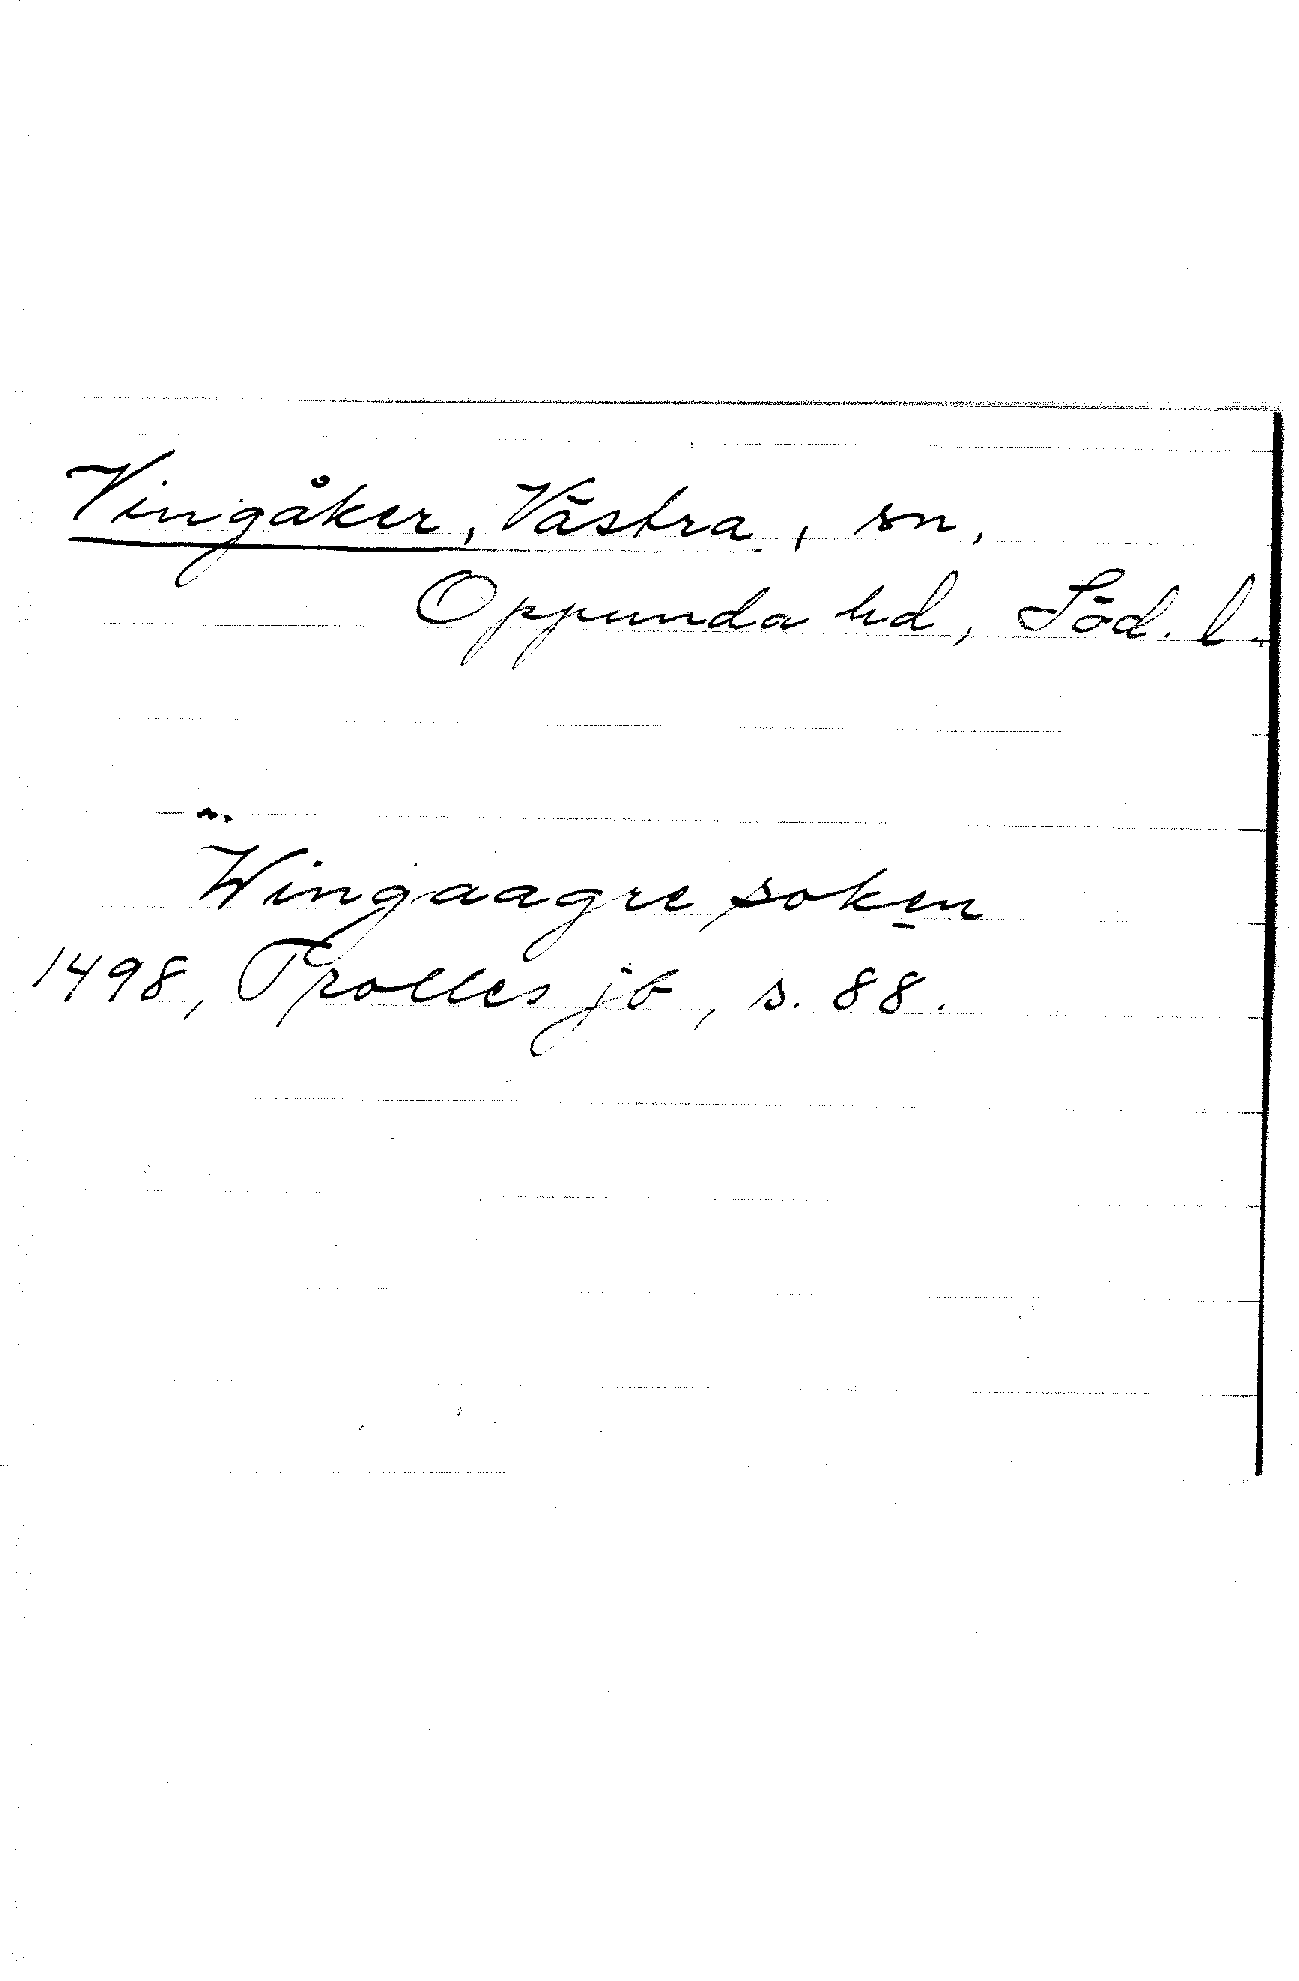 Vingåker, Västra, sn,
Oppunda hd, Söd. l.
Wingaagre soken
1498, Trolles jb, s. 88.